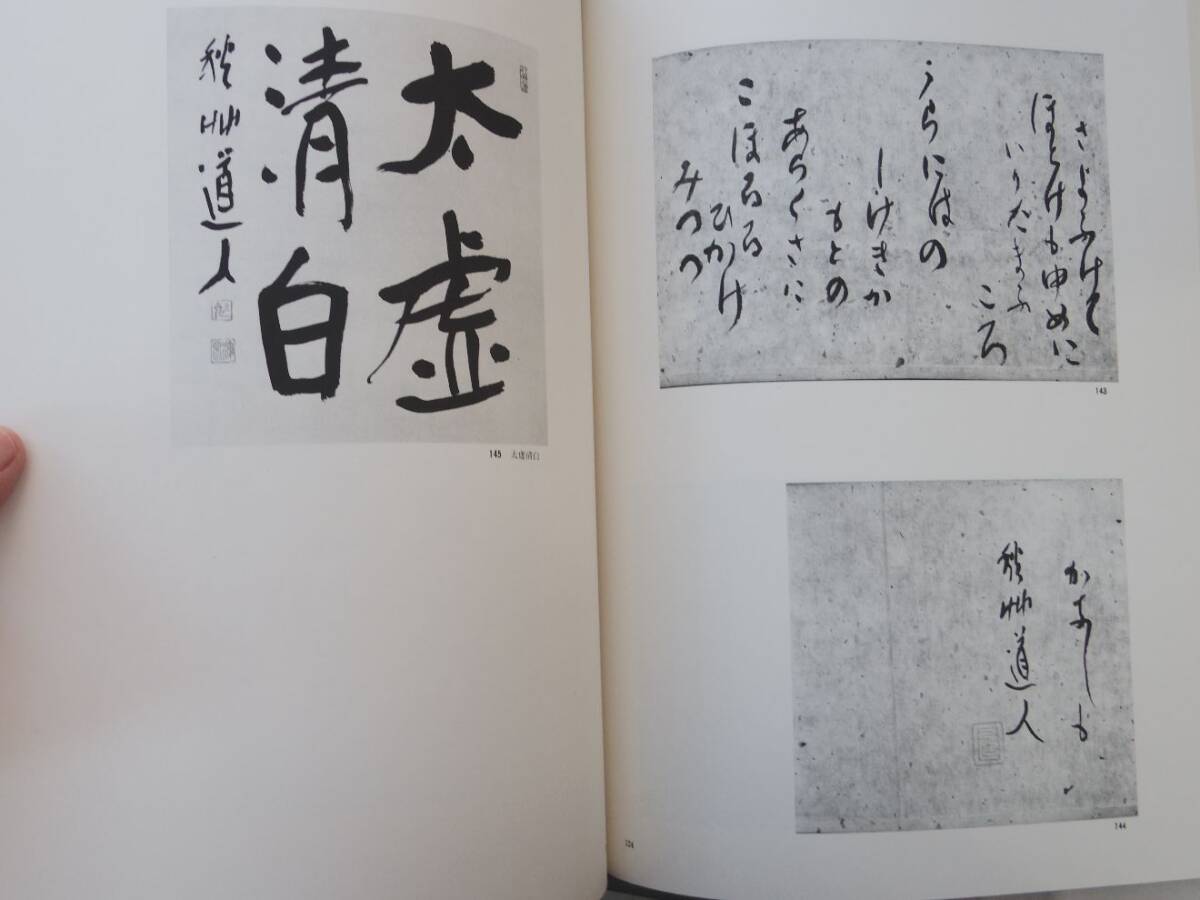 さよふけて
ほとけもゆめに
いりたまふ
ころ
うらにはの
しけきか
もとの
あらくさに
こほるる
ひかけ
みつつ
143
かなしも
秋艸道人
144
124
太虚
清白
秋艸道人
145 太虚清白